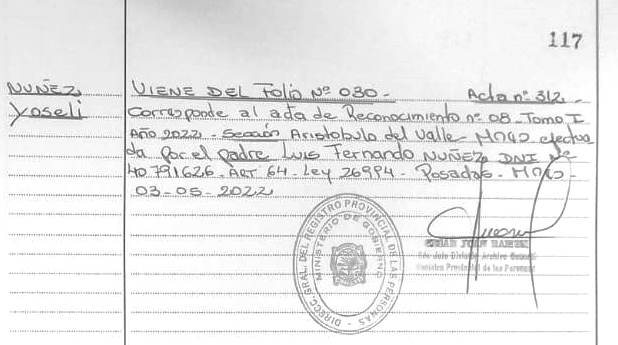 117
NUÑEZ
Yoseli
VIENE DEL Folio Nº 030 - Acta nº 312 -
Corresponde al acta de Reconocimiento nº 08 - Tomo I
Año 2022 - Sección Aristobulo del Valle - Mnes efectua
da por el padre Luis Fernando NUÑEZ, DNI Nº
40 791626 - ART 64 - Ley 26994 - Posadas - Mnes -
03-05-2022
DIRECC. GRAL. DEL REGISTRO PROVINCIAL DE LAS PERSONAS -
MINISTERIO DE GOBIERNO
Archivo General
Registro Provincial de las Personas